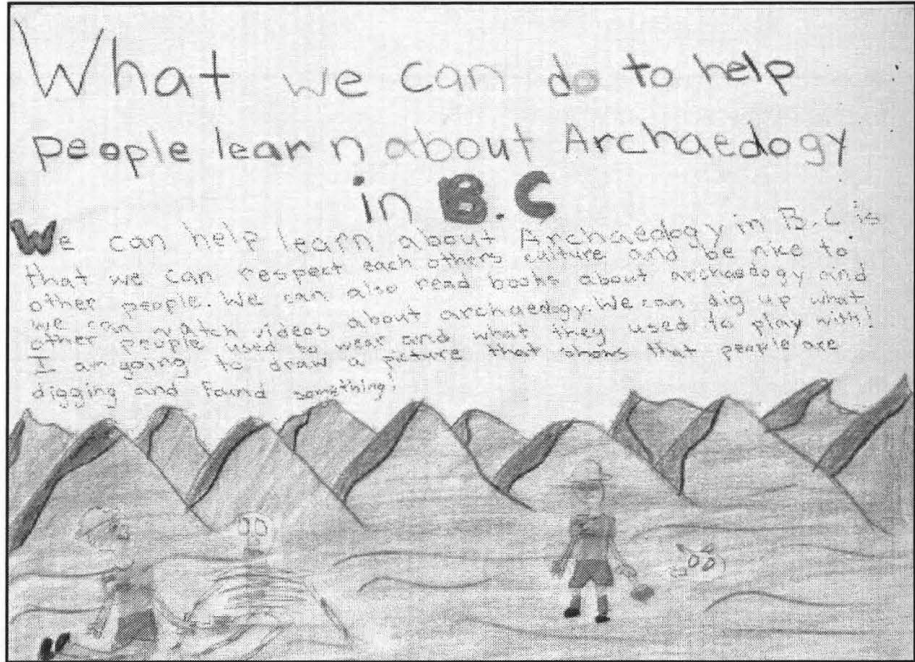 What we can do to help
people learn about Archaedogy
in B.C
We can help learn about Archaedogy in B.C is
that we can respect each others culture and be nice to
other people. We can also read books about archaedogy and
we can watch videos about archaedogy. We can dig up what
other people used to wear and what they used to play with!
I am going to draw a picture that shows that people are
digging and found something!